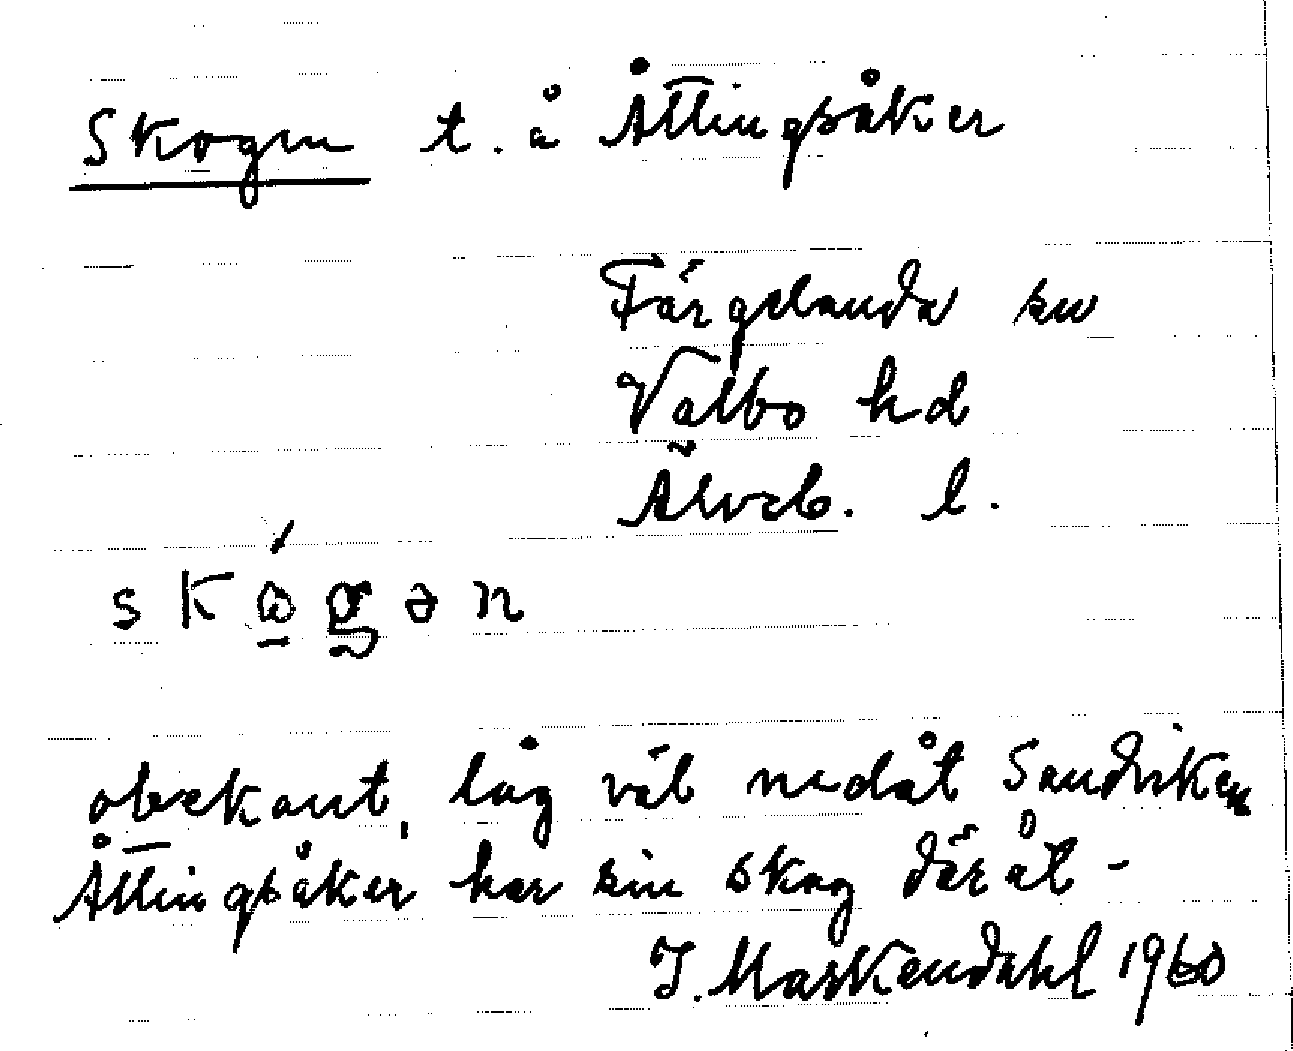 Skogen t. å Åttingsåker
Färgelanda sn
Valbo hd
Älvsb. l.
skógən
obekant, låg väl nedåt Sandviken
Åttingsåker har sin skog däråt -
I. Maskendahl 1960